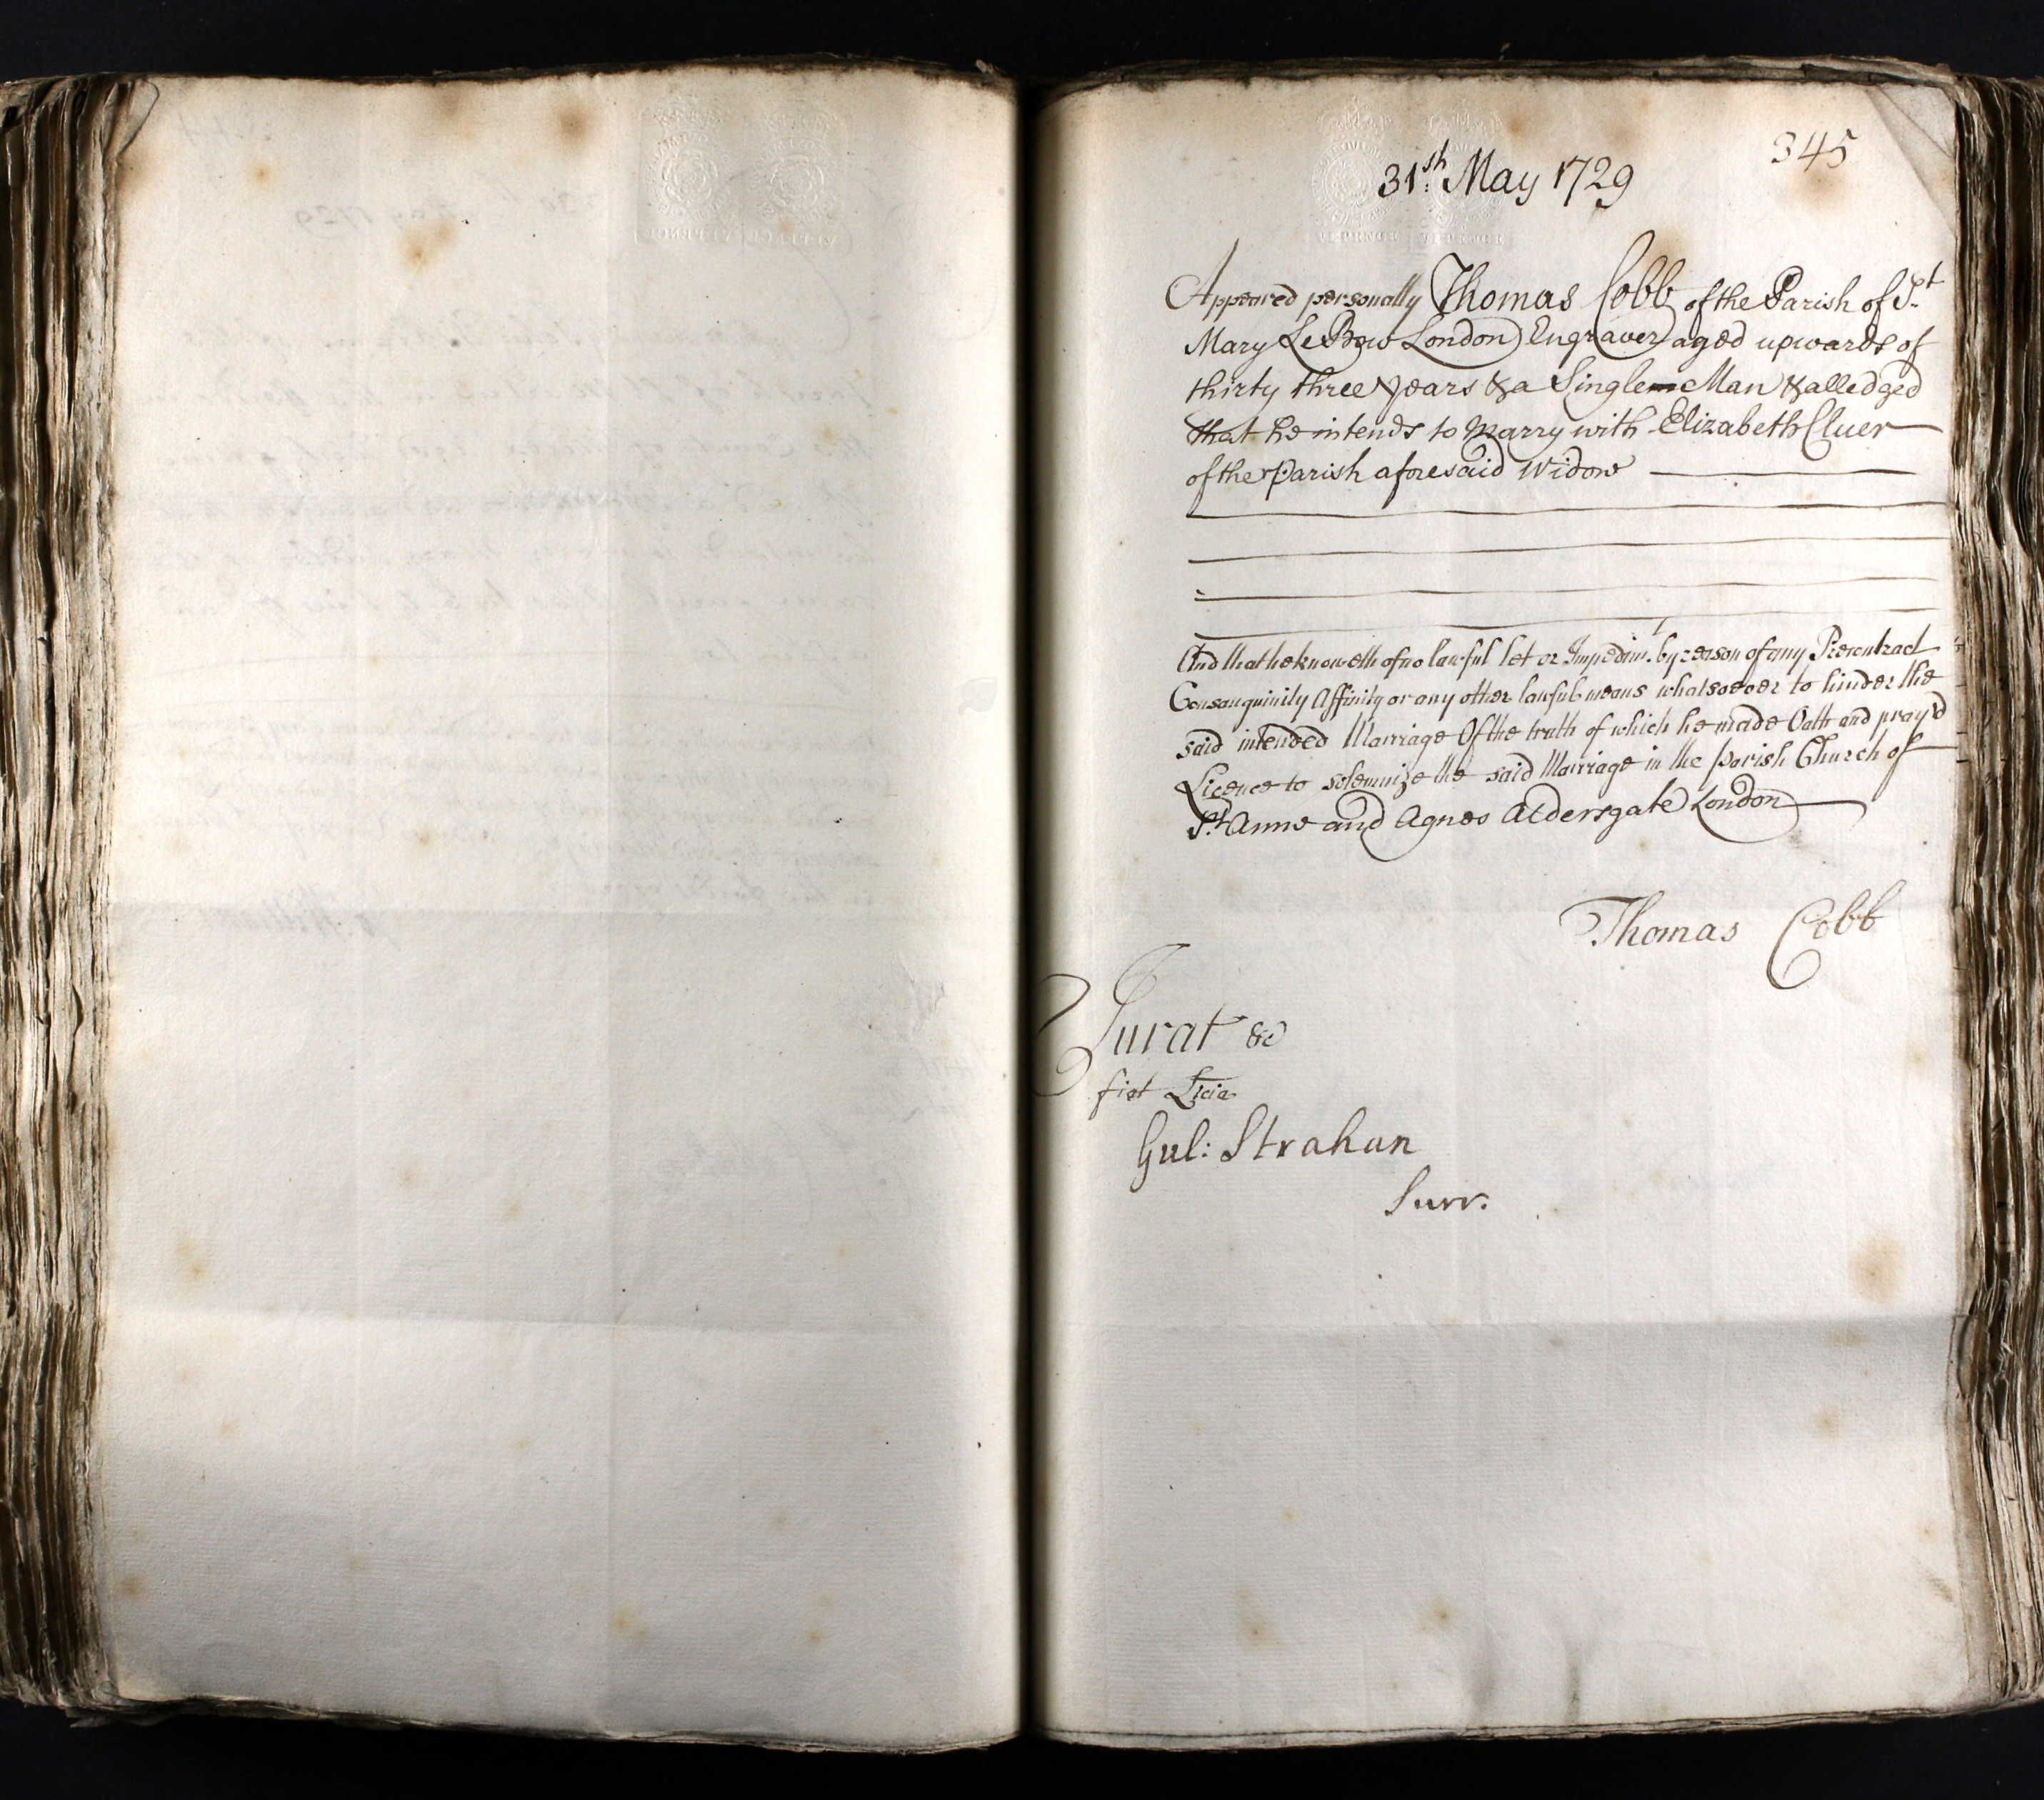 345
31st. May 1729
Appeared personally Thomas Cobb of the Parish of St.
Mary Le Bow London Engraver aged upwards of
thirty three years & a Single Man & alledged
that he intends to Marry with Elizabeth Cluer
of the Parish aforesaid Widow
And that he knoweth of no lawful let or Impedimt. by reason of any Precontract
Consanguinity Affinity or any other lawful means whatsoever to hinder the
said intended Marriage Of the truth of which he made Oath and pray'd
Licence to solemnize the said Marriage in the Parish Church of
St. Anne and Agnes Aldersgate London
Thomas Cobb
Jurat &c
fiat Licia
Gul: Strahan
Surr.